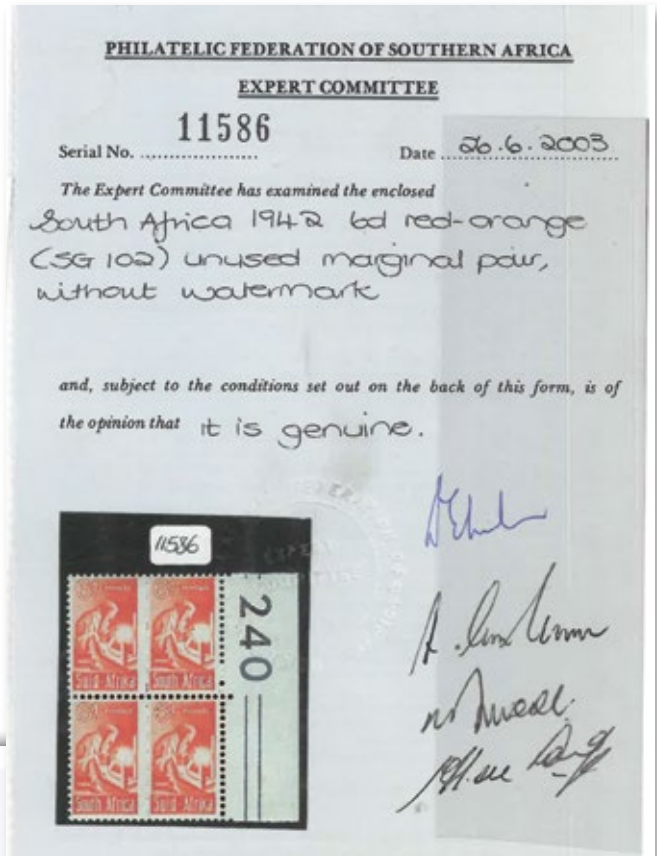 PHILATELIC FEDERATION OF SOUTHERN AFRICA
EXPERT COMMITTEE
Serial No. 11586
Date 26.6.2003
The Expert Committee has examined the enclosed
South Africa 1942 6d red-orange
(SG 102) unused marginal pair,
without watermark
and, subject to the conditions set out on the back of this form, is of
the opinion that it is genuine.
11586
240
Suid Afrika South Africa
South Africa Suid Afrika